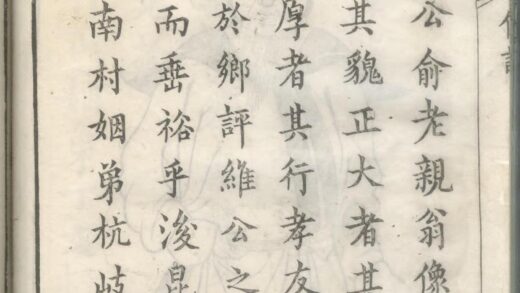 公俞老親翁像
其貌正大者其
厚者其行孝友
於鄉評維公之
而垂裕乎浚昆
南村姻弟杭岐